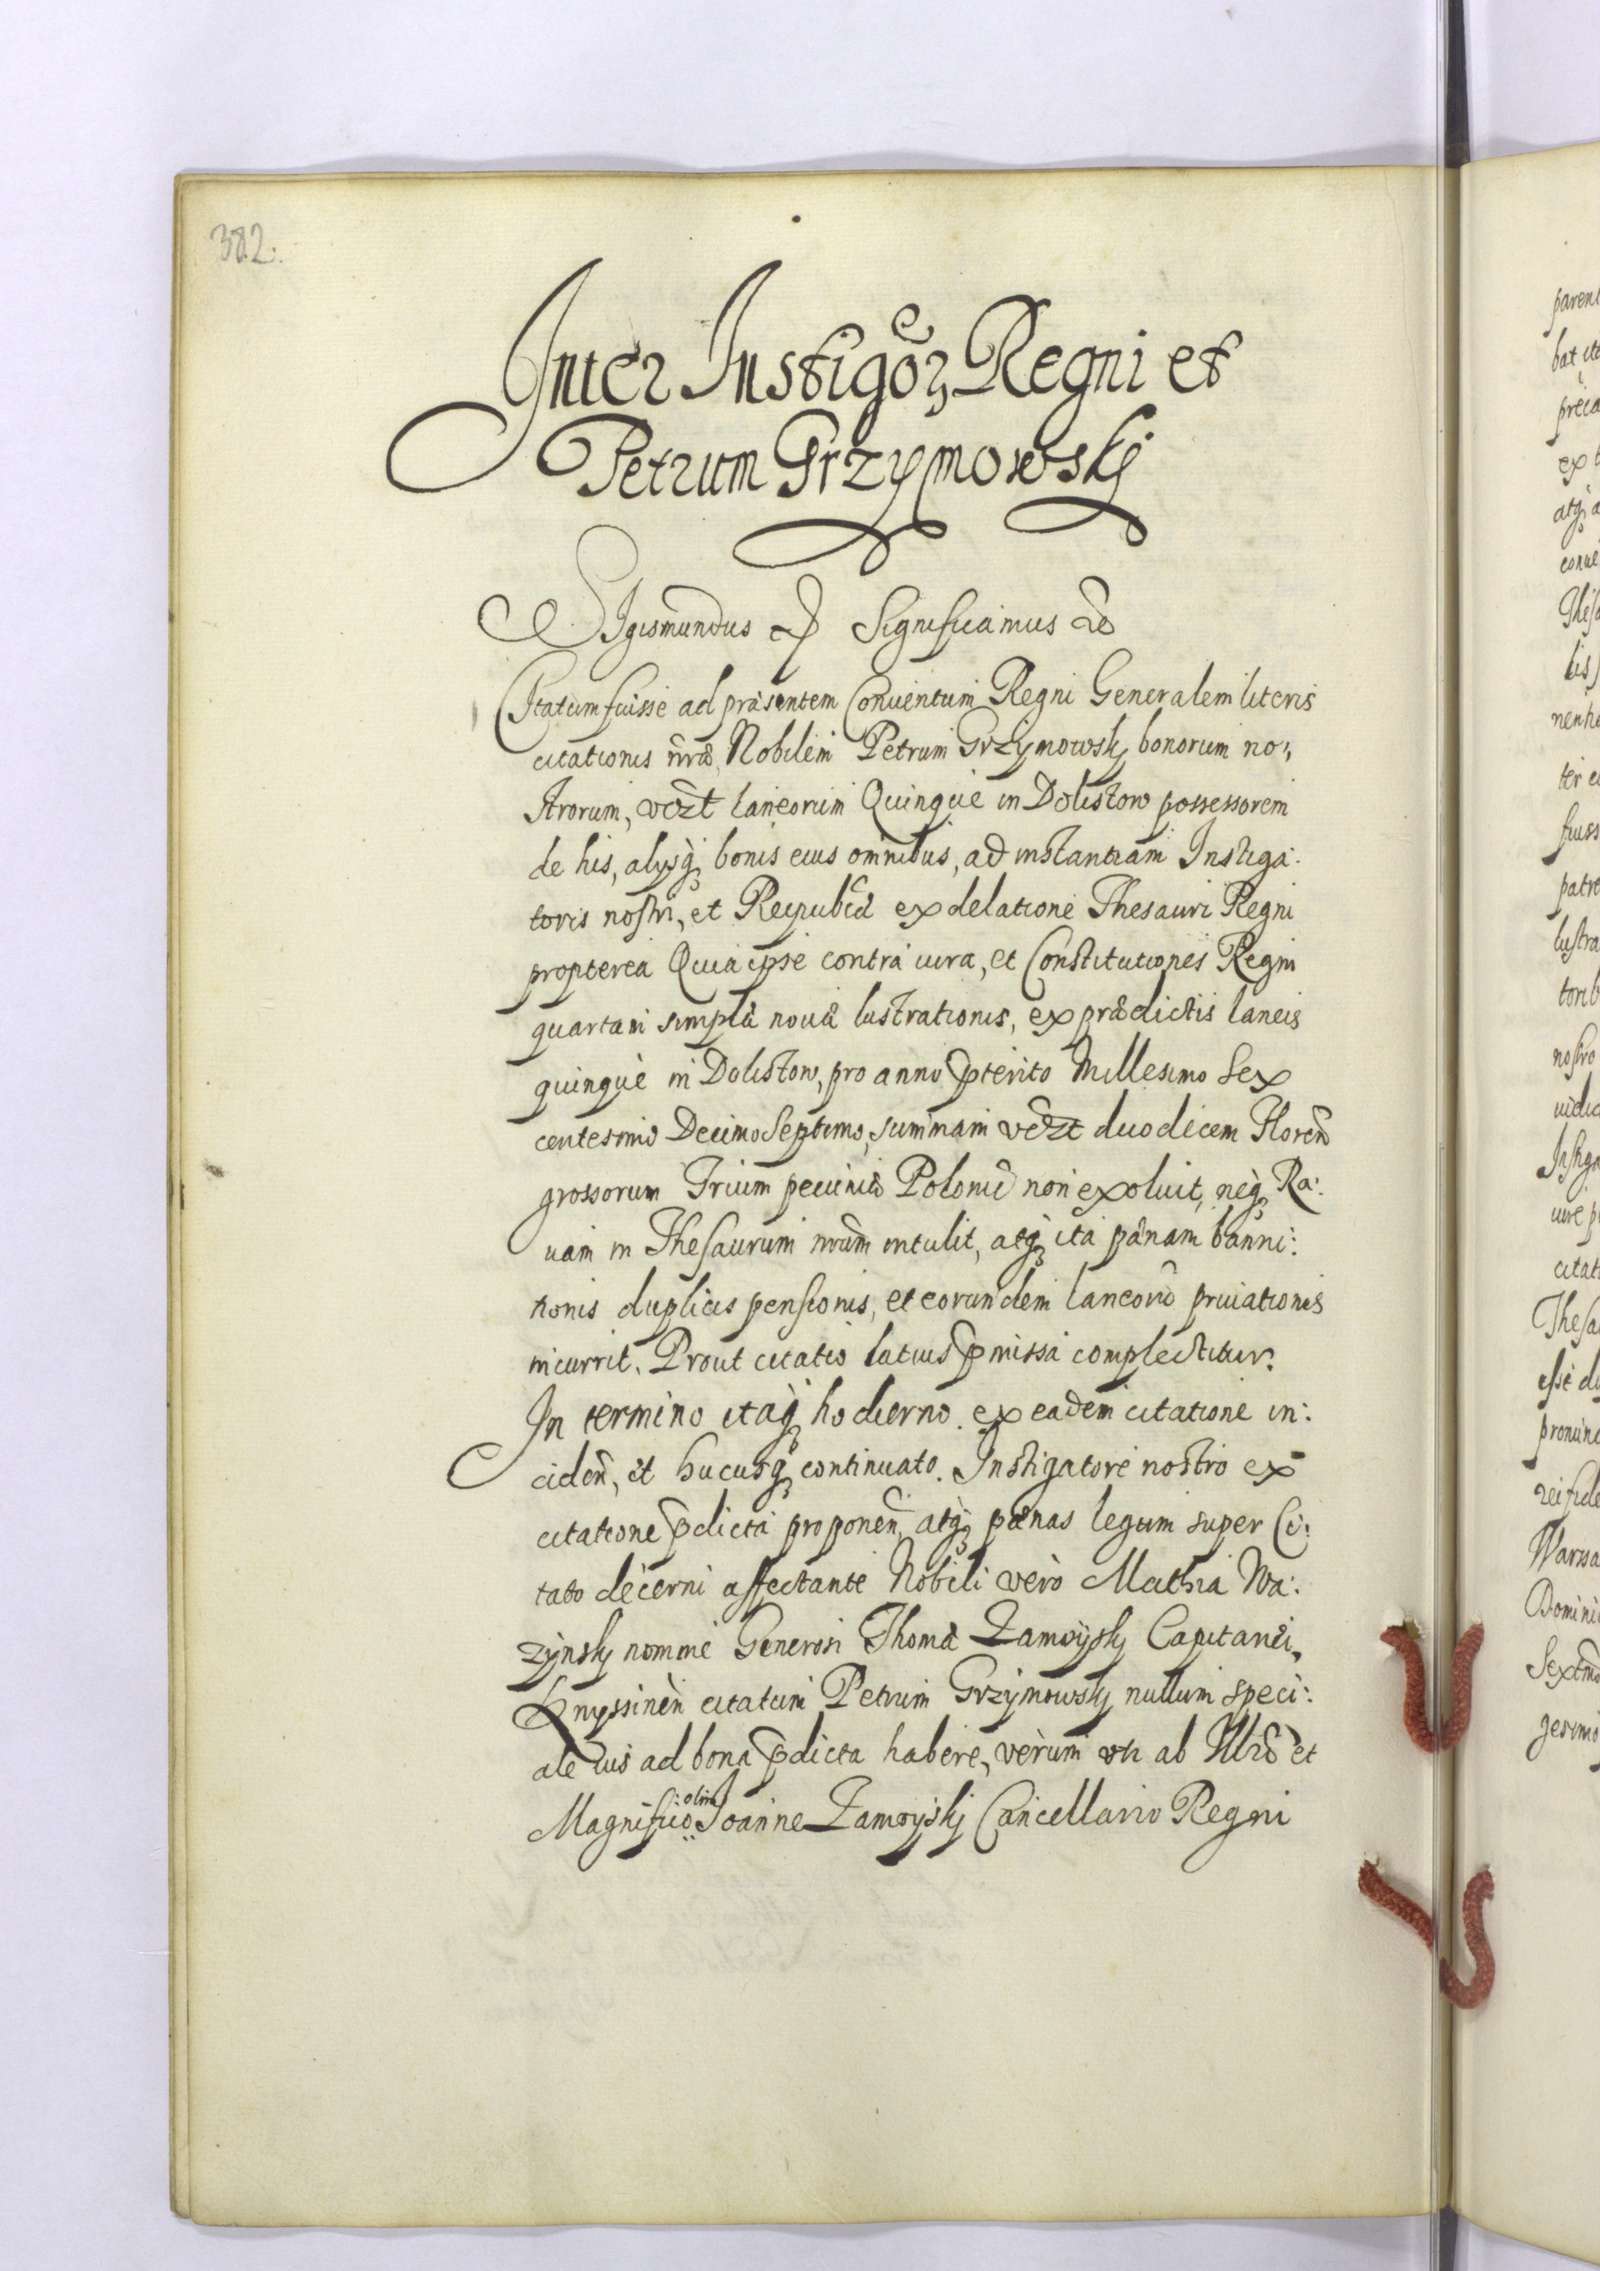 382.
Inter Instigōr Regni et
Petrum Grzymowskj
Sigismundus Significamus
Citatum fuisse ad præsentem Conuentum Regni Generalem literis
citationis nrœ, Nobilem Petrum Grzymowskj bonorum no:
strorum, vdzt laneorum Quinque in Dolistow possessorem
de his, alysq bonis eius omnibus, ad instantiam Instiga:
toris nostri, et Reipubcæ ex delatione Thesauri Regni
propterea Quia ipse contra iura, et Constitutiones Regni
quartam simplæ nouæ lustrationis, ex prædictis laneis
quinque in Dolistow, pro anno pterito Millesimo Sex
centesimo Decimo Septimo, summam vdzt duodicem Floren
grossorum Trium pecuniæ Poloniæ non exoluit, neq Ra:
uam in Thesaurum nrum intulit, atq ita pænam banni:
tionis duplicis pensionis, et eorundem laneorū priuationis
incurrit. Prout citatio latius pmissa complectitur.
In termino itaq hodierno ex eadem citatione in:
ciden, et hucusq continuato. Instigatore nostro ex
citatione pdicta proponen, atq pænas legum super Ci:
tato decerni affectante Nobili vero Mathia Wa:
zynskj nomine Generosi Thomæ Zamoyskj Capitanei
Knyssinen citatum Petrum Grzymowskj nullum speci:
ale ius ad bona pdicta habere, verum vti ab Illrō et
Magnifico olim Joanne Zamoyskj Cancellario Regni